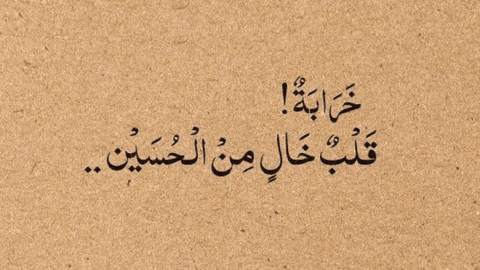 خَرَابَةٌ!
قَلْبٌ خَالٍ مِنْ الْحُسَيْنِ..